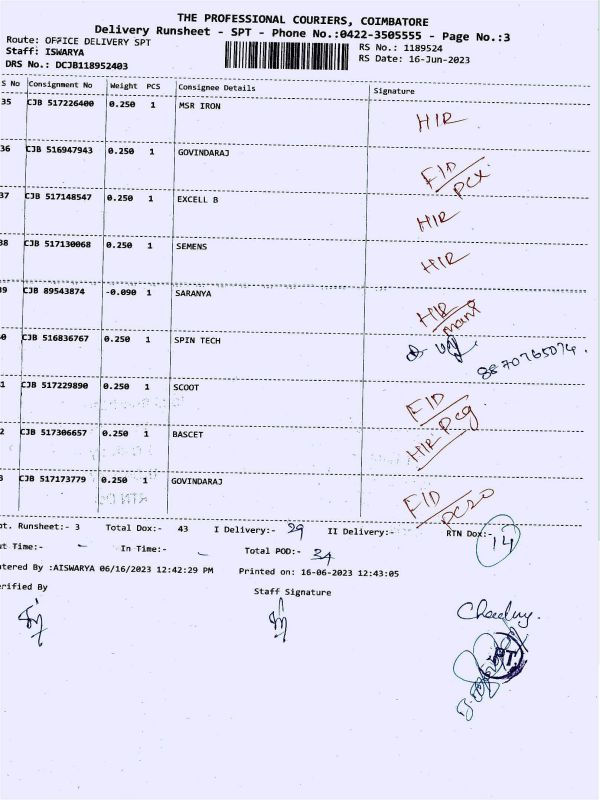 THE PROFESSIONAL COURIERS, COIMBATORE
Delivery Runsheet - SPT - Phone No.:0422-3505555 - Page No.:3
Route: OFFICE DELIVERY SPT
RS No.: 1189524
Staff: ISWARYA
RS Date: 16-Jun-2023
DRS No.: DCJB118952403
S No Consignment No Weight PCS Consignee Details Signature
35 CJB 517226400 0.250 1 MSR IRON HIR
36 CJB 516947943 0.250 1 GOVINDARAJ FID
PCX
37 CJB 517148547 0.250 1 EXCELL B HIR
38 CJB 517130068 0.250 1 SEMENS HIR
39 CJB 89543874 -0.090 1 SARANYA HIR
0 CJB 516836767 0.250 1 SPIN TECH 8870765074.
1 CJB 517229890 0.250 1 SCOOT FID
2 CJB 517306657 0.250 1 BASCET HIR pcg
3 CJB 517173779 0.250 1 GOVINDARAJ FID
PC20
pt. Runsheet:- 3 Total Dox:- 43 I Delivery:- 29 II Delivery:- RTN Dox:- 14
ut Time:- - In Time:- - Total POD:- 34
ntered By :AISWARYA 06/16/2023 12:42:29 PM Printed on: 16-06-2023 12:43:05
erified By Staff Signature
PT.